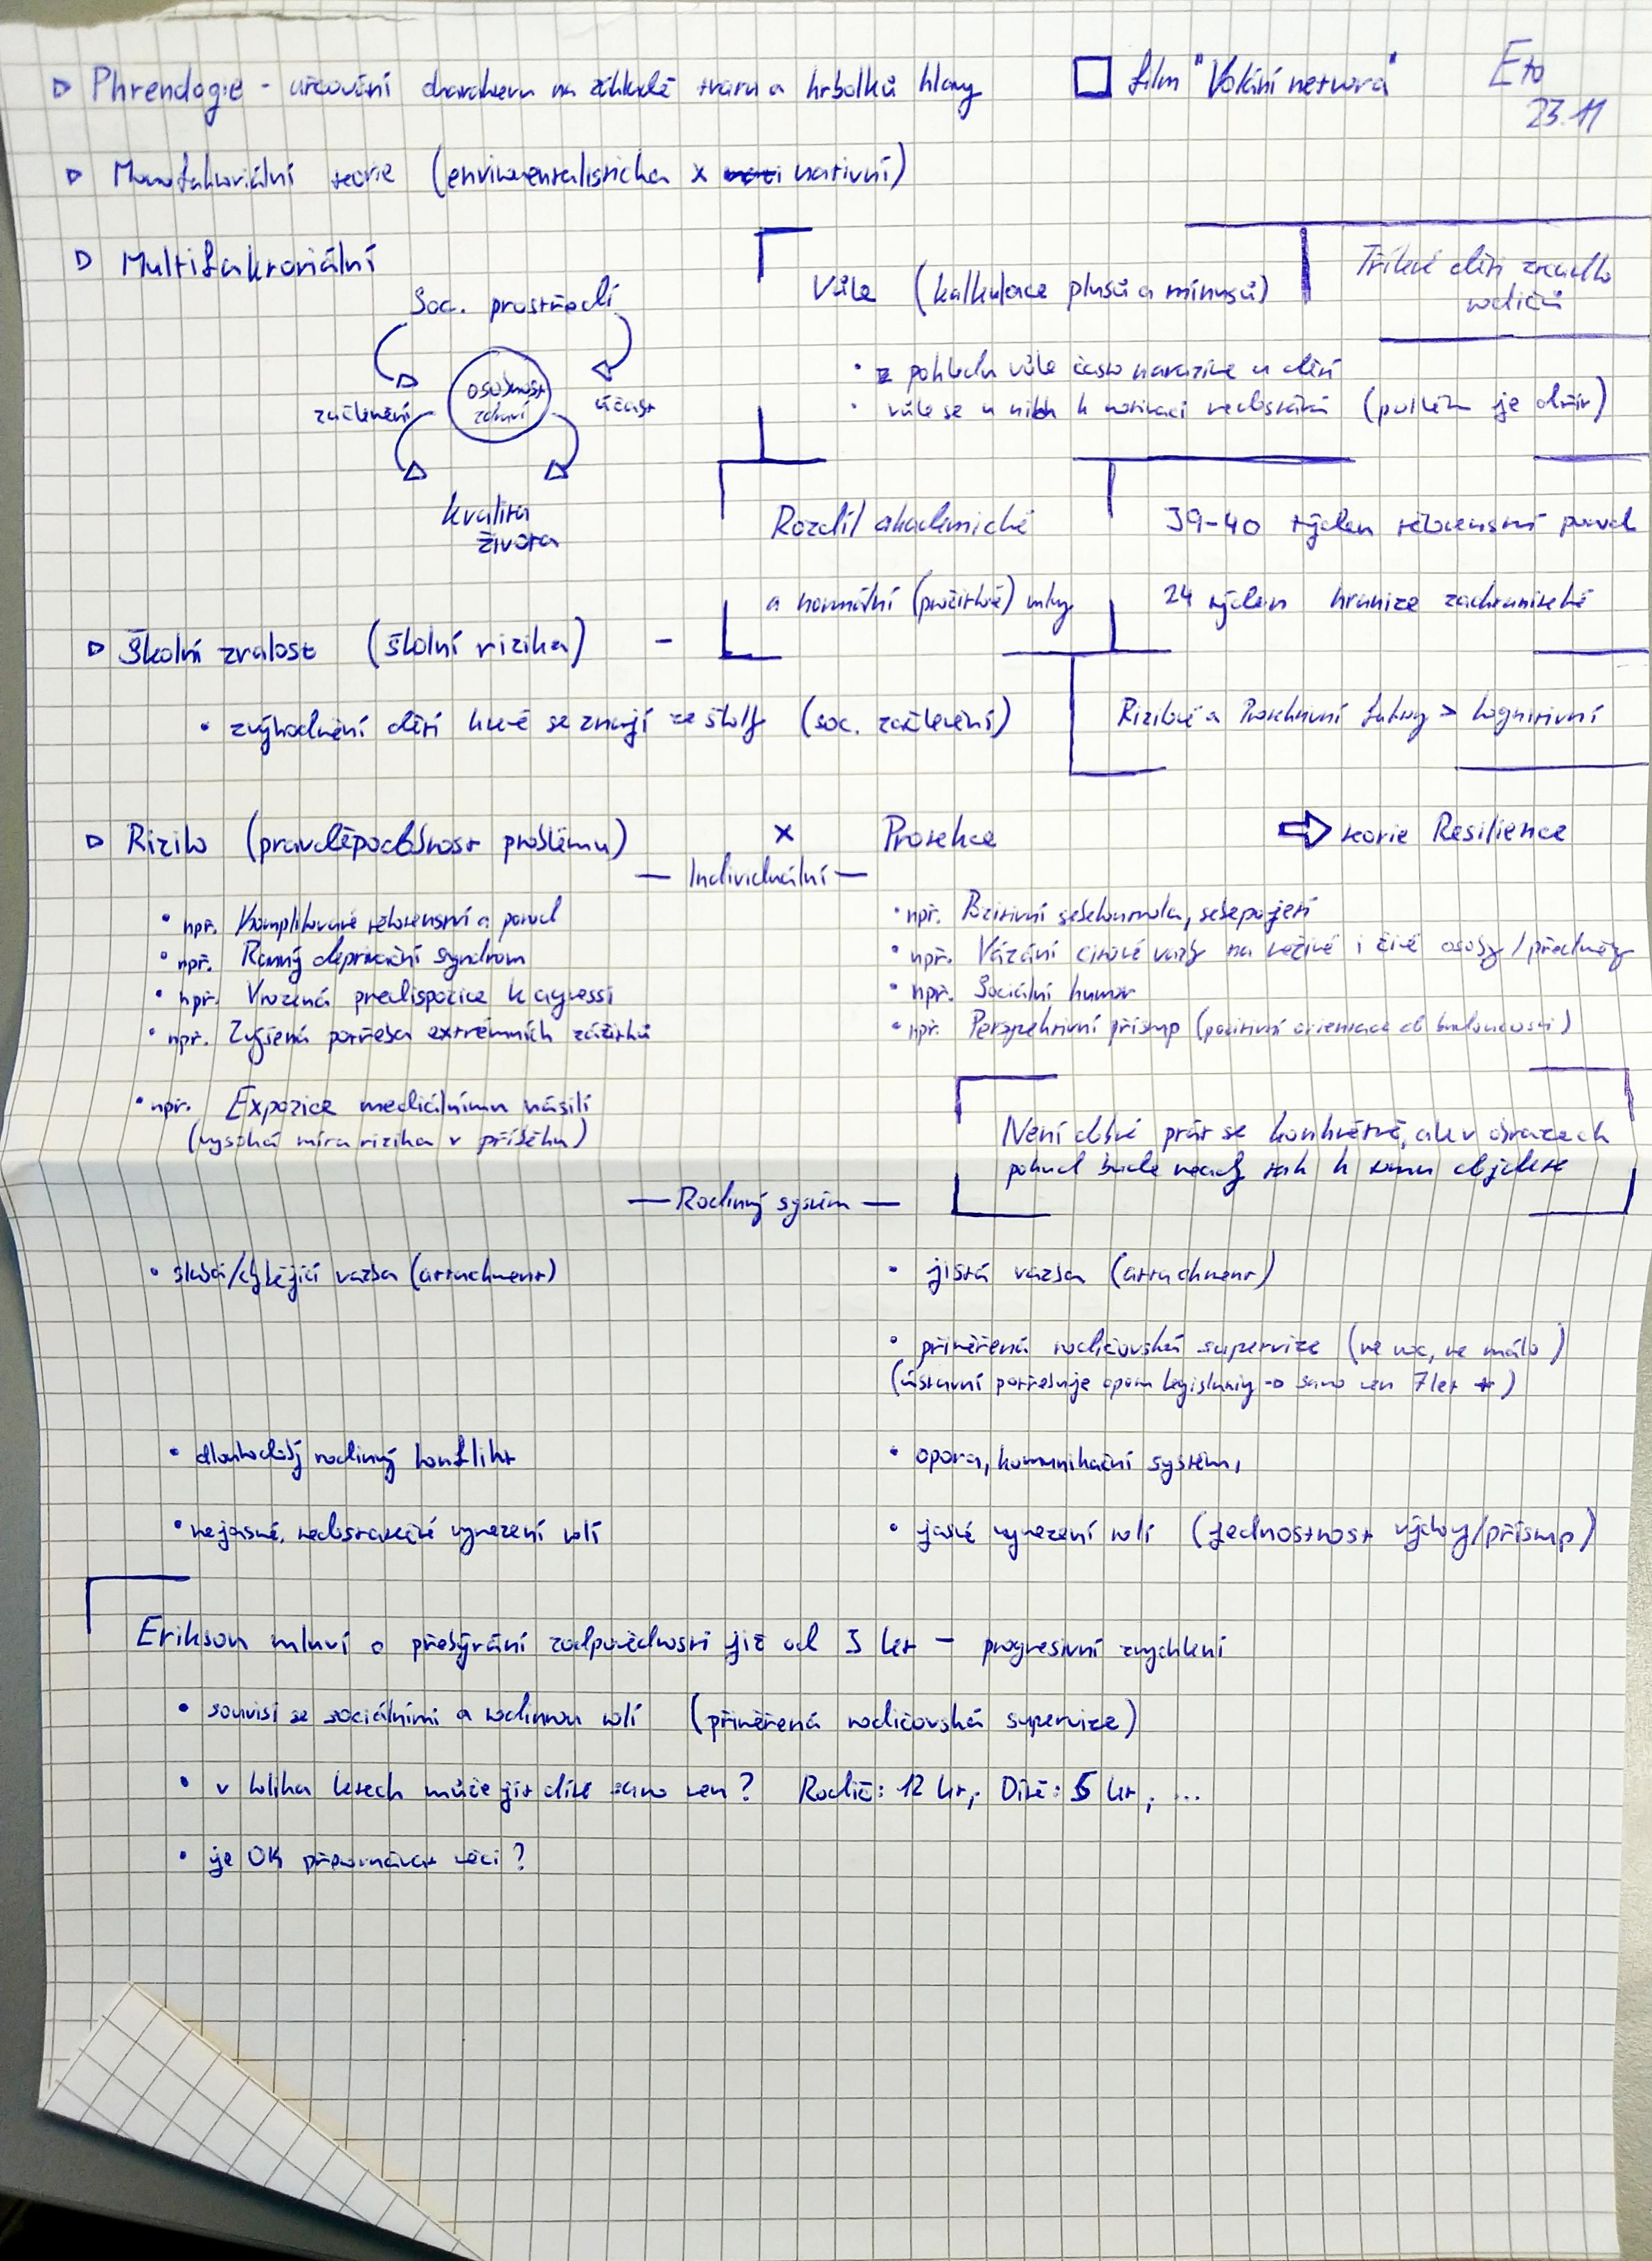 Phrenologie - určování charakteru na základě tvaru a hrbolků hlavy
film "Volání netvora"
Eto
23.11
Monofaktoriální teorie (enviromentalistická x nativní)
Multifaktoriální
Soc. prostředí
osobnost
zdraví
začlenění
účast
kvalita
života
Vůle (kalkulace plusů a mínusů)
• z pohledu vůle často narazíme u dětí
• vůle se u nich k motivaci nedostává (potíž je dřív)
děti zrcadlo
rodičů
Rozdíl akademické
a normální (prožitkové)
39-40 týden těhotenství porod
24 týden hranice zachranitelné
Školní zralost (školní rizika) -
• zvýhodnění dětí které se znají ze školky (soc. začlenění)
Rizikové a Protektivní faktory > kognitivní
Riziko (pravděpodobnost problému) x Protekce ⇒ teorie Resilience
— Individuální —
• např. Komplikované těhotenství a porod
• např. Ranný deprivační syndrom
• např. Vrozená predispozice k agressi
• např. Zvýšená potřeba extrémních zážitků
• např. Expozice mediálnímu násilí
(vysoká míra rizika v příběhu)
• např. Pozitivní sebehodnota, sebepojetí
• např. Vázání citové vazby na neživé i živé osoby/předměty
• např. Sociální humor
• např. Perspektivní přístup (pozitivní orientace do budoucnosti)
Není dobré ptát se konkrétně, ale v obrazech
pokud bude vedly tak k tomu dojdete
— Rodinný systém —
• slabá/chybějící vazba (attachment)
• jistá vazba (attachment)
• přiměřená rodičovská supervize (ne moc, ne málo)
(ústavní potřebuje oporu legislativy → samo ven 7 let +)
• dlouhodobý rodinný konflikt
• opora, komunikační systém,
• nejasné, nedostatečné vymezení rolí
• jasné vymezení rolí (jednostnost výchovy/přístup)
Erikson mluví o přebývání zodpovědnosti již od 3 let - progresivní zrychlení
• souvisí se sociálními a rodinnou rolí (přiměřená rodičovská supervize)
• v kolika letech může jít dítě samo ven? Rodič: 12 let, Dítě: 5 let, ...
• je OK připomínat věci?